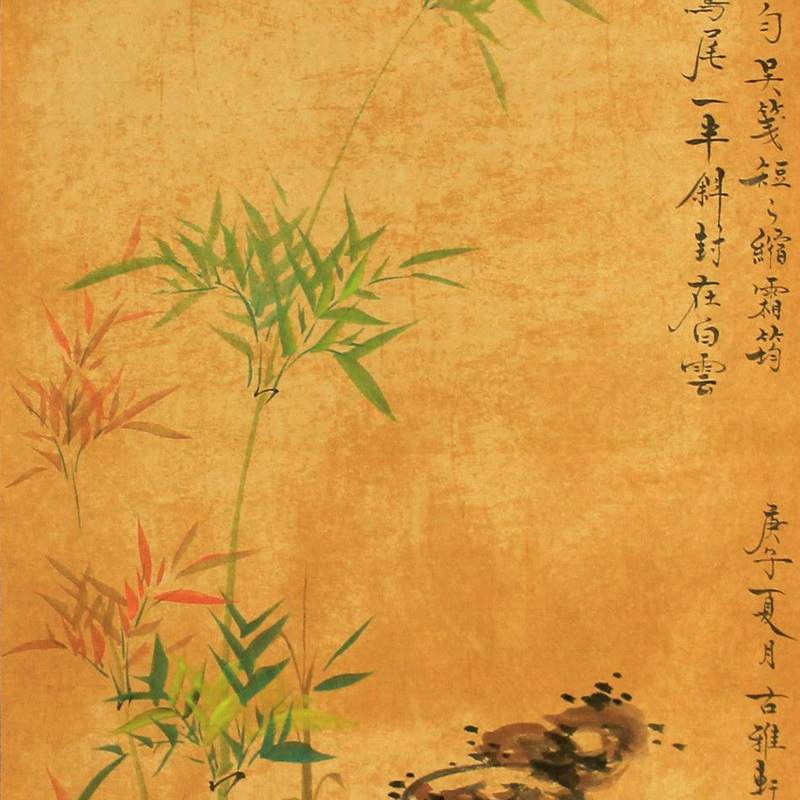 匀吴箋短〻縮霜筠
尾一半斜封在白雲
庚子夏月古雅軒